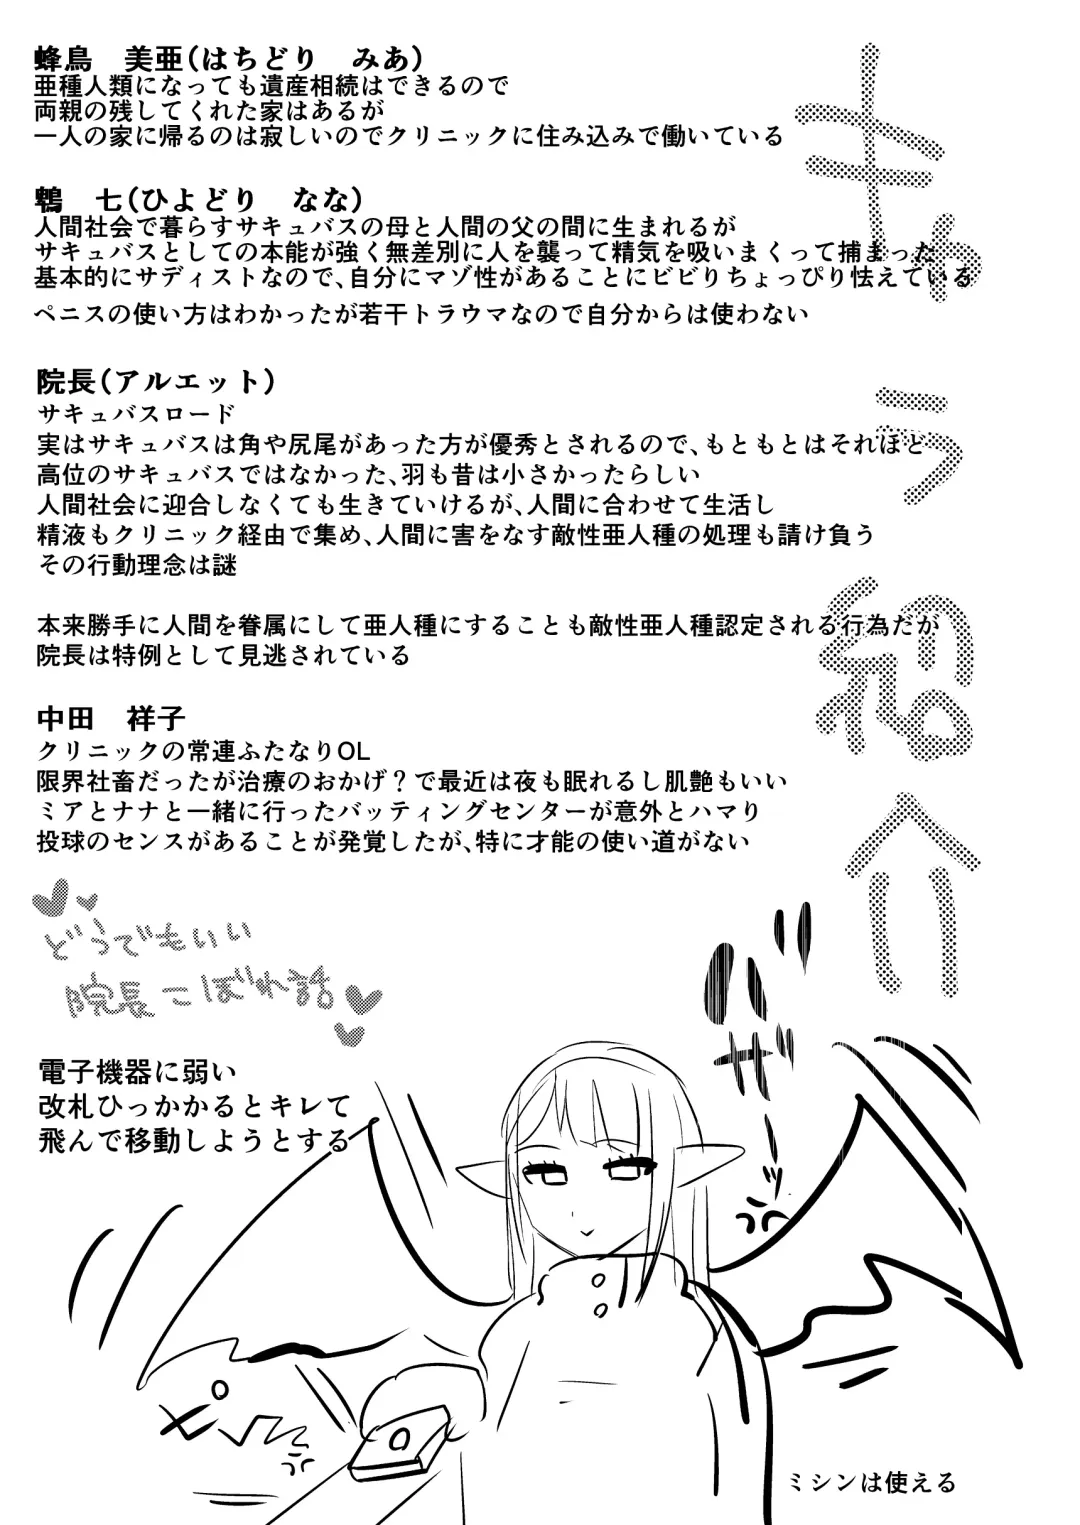 キャラ紹介
蜂鳥 美亜(はちどり みあ)
亜種人類になっても遺産相続はできるので
両親の残してくれた家はあるが
一人の家に帰るのは寂しいのでクリニックに住み込みで働いている
鵯 七(ひよどり なな)
人間社会で暮らすサキュバスの母と人間の父の間に生まれるが
サキュバスとしての本能が強く無差別に人を襲って精気を吸いまくって捕まった
基本的にサディストなので、自分にマゾ性があることにビビりちょっぴり怯えている
ペニスの使い方はわかったが若干トラウマなので自分からは使わない
院長(アルエット)
サキュバスロード
実はサキュバスは角や尻尾があった方が優秀とされるので、もともとはそれほど
高位のサキュバスではなかった、羽も昔は小さかったらしい
人間社会に迎合しなくても生きていけるが、人間に合わせて生活し
精液もクリニック経由で集め、人間に害をなす敵性亜人種の処理も請け負う
その行動理念は謎
本来勝手に人間を眷属にして亜人種にすることも敵性亜人種認定される行為だが
院長は特例として見逃されている
中田 祥子
クリニックの常連ふたなりOL
限界社畜だったが治療のおかげ？で最近は夜も眠れるし肌艶もいい
ミアとナナと一緒に行ったバッティングセンターが意外とハマり
投球のセンスがあることが発覚したが、特に才能の使い道がない
どうでもいい
院長こぼれ話
電子機器に弱い
改札ひっかかるとキレて
飛んで移動しようとする
バサ゛ーッ
ピンポーン
ミシンは使える